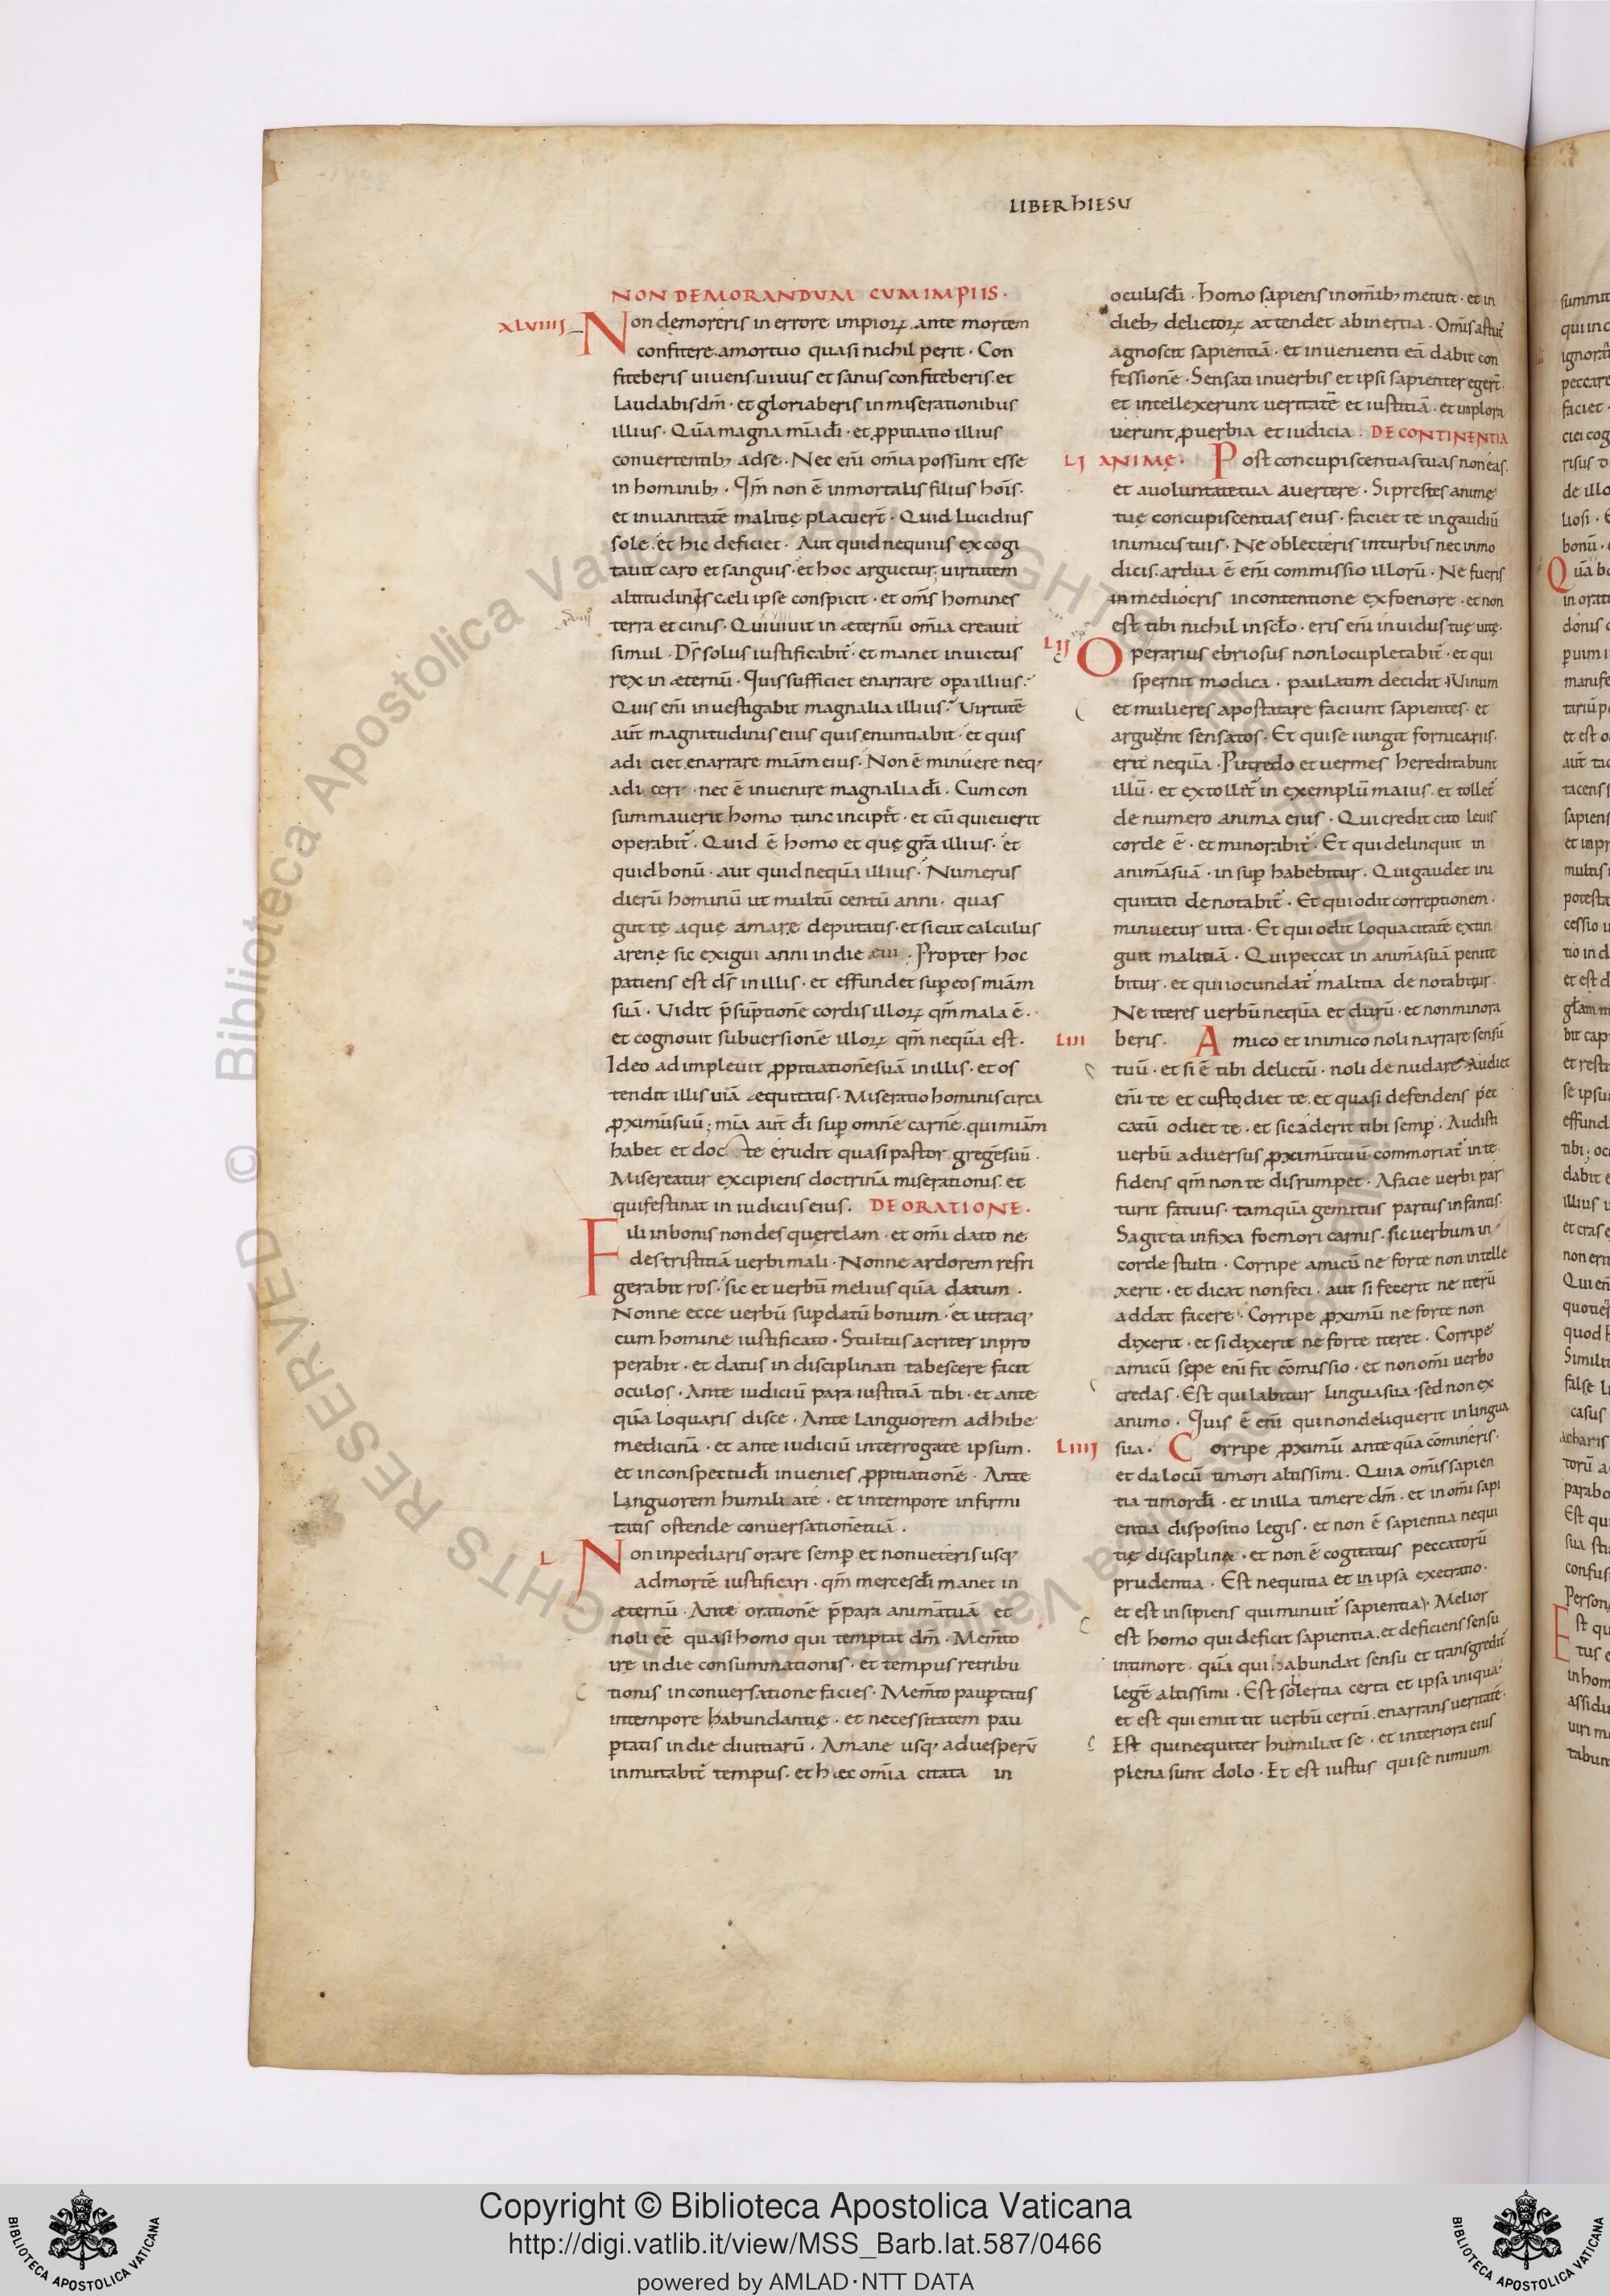 LIBER hIESU
NON DEMORANDUM CUM IMPIIS ·
XLVIIIJ
Non demoreris in errore impioꝝ. ante mortem
confitere. amortuo quasi nichil perit · Con
fiteberis uiuens. uiuus et sanus confiteberis. et
laudabis dm̄ · et gloriaberis in miserationibus
illius · Quā magna mīa dī · et ꝓpitiatio illius
conuertentib; adse · Nec enī om̄ia possunt esse
in hominib; · Qm̄ non ē inmortalis filius hoīs ·
et in uanitatē malitię placuer̄ · Quid lucidius
sole. et hic deficiet · Aut quid nequius excogi
tauit caro et sanguis · et hoc arguetur; uirtutem
altitudinis cæli ipse conspicit · et om̄s homines
terra et cinis · Qui uiuit in æternū om̄ia creauit
simul · Dr̄ solus iustificabit̄ · et manet inuictus
rex in æternū · Quis sufficiet enarrare oꝑa illius ·
Quis enī inuestigabit magnalia illius · Uirtutē
aūt magnitudinis eius quis enuntiabit · et quis
adi ciet enarrare miām eius · Non ē minuere neq;
adi cere · nec ē inuenire magnalia dī · Cum con
summauerit homo tunc incipit̄ · et cū quieuerit
operabit̄ · Quid ē homo et quę grā illius · et
quid bonū · aut quid nequā illius · Numerus
dierū hominū ut multū centū anni · quas
guttę aquę amarę deputatis · et sicut calculus
arenę sic exigui anni in die eui · Propter hoc
patiens est ds̄ in illis · et effundet suꝑ eos miām
suā · Uidit p̄sūptionē cordis illoꝝ qm̄ mala ē ·
et cognouit subuersionē illoꝝ qm̄ nequā est ·
Ideo adimpleuit ꝓpitiationē suā in illis · et os
tendit illis uiā æquitatis · Miseratio hominis circa
ꝓximū suū; mīa aūt dī suꝑ omnē carnē. qui miām
habet et doc te erudit quasi pastor gregē suū ·
Misereatur excipiens doctrinā miserationis. et
qui festinat in iudiciis eius. DE ORATIONE ·
Fili in bonis non des querelam · et om̄i dato ne
des tristitiā uerbi mali · Nonne ardorem refri
gerabit ros · sic et uerbū melius quā datum ·
Nonne ecce uerbū suꝑ datū bonum · et utraq;
cum homine iustificato · Stultus acriter inpro
perabit · et datus in disciplinati tabescere facit
oculos · Ante iudiciū para iustitiā tibi · et ante
quā loquaris disce · Ante languorem adhibe
medicinā · et ante iudiciū interrogate ipsum ·
et in conspectu dī inuenies ꝓpitiationē · Ante
languorem humili ate · et intempore infirmi
tatis ostende conuersationē tuā.
L
Non inpediaris orare semꝑ et non ueteris usq;
ad mortē iustificari · qm̄ merces dī manet in
æternū · Ante orationē p̄para animā tuā et
noli eē quasi homo qui temptat dm̄ · Mem̄to
ire in die consummationis · et tempus retribu
tionis in conuersatione facies · Mem̄to pauꝑtatis
intempore habundantię · et necessitatem pau
ꝑtatis in die diuitiarū · Amane usq; ad uesperū
inmutabit̄ tempus. et hæc om̄ia citata in
oculis dī · homo sapiens in om̄ib; metuit · et in
dieb; delictoꝝ attendet ab inertia · Om̄is astut̄
agnoscit sapientiā · et inuenienti eā dabit con
fessionē · Sensati in uerbis et ipsi sapienter eger̄t ·
et intellexerunt ueritatē et iustitiā · et inplora
uerunt ꝓuerbia et iudicia · DE CONTINENTIA
LJ ANIMĘ · Post concupiscentias tuas non eas ·
et auoluntate tua auertere · Si prestes animę
tuę concupiscentias eius · faciet te in gaudiū
inimicis tuis · Ne oblecteris in turbis nec in mo
dicis. ardua ē enī commissio illorū · Ne fueris
in mediocris in contentione ex foenore · et non
est tibi nichil in sc̄lo · eris enī inuidus tuę uitę ·
LIJ
Operarius ebriosus non locupletabit̄ · et qui
spernit modica · paulatim decidit · Uinum
et mulieres apostatare faciunt sapientes · et
arguent sensatos · Et qui se iungit fornicariis ·
erit nequā · Putredo et uermes hereditabunt
illū · et extollet̄ in exemplū maius · et tollet̄
de numero anima eius · Qui credit cito leuis
corde ē · et minorabit̄ · Et qui delinquit in
animā suā · insuꝑ habebitur · Qui gaudet ini
quitati denotabit̄ · Et qui odit correptionem ·
minuetur uita · Et qui odit loquacitatē extin
guit malitiā · Qui peccat in animā suā penite
bitur · et qui iocundat̄ malitia denotabitur ·
Ne iteres uerbū nequā et durū · et non minora
LIII beris · Amico et inimico noli narrare sensū
tuū · et si ē tibi delictū · noli denudare · Audiet
enī te et custodiet te. et quasi defendens pec
catū odiet te · et sic aderit tibi semꝑ · Audisti
uerbū aduersus ꝓximū tuū commoriat̄ in te ·
fidens qm̄ non te disrumpet · Afacie uerbi par
turit fatuus · tamquā gemitus partus infantis ·
Sagitta infixa foemori carnis · sic uerbum in
corde stulti · Corripe amicū ne forte non intelle
xerit · et dicat non feci · aut si fecerit ne iterū
addat facere · Corripe ꝓximū ne forte non
dixerit · et si dixerit ne forte iteret · Corripe
amicū sępe enī fit cōmissio · et non om̄i uerbo
credas · Est qui labitur lingua sua · sed non ex
animo · Quis ē enī qui non deliquerit in lingua
LIIIJ sua · Corripe ꝓximū ante quā cōmineris ·
et da locū timori altissimi · Quia om̄is sapien
tia timor dī · et in illa timere dm̄ · et in om̄i sapi
entia dispositio legis · et non ē sapientia nequi
tię disciplina · et non ē cogitatus peccatorū
prudentia · Est nequitia et in ipsa exetratio ·
et est insipiens qui minuit̄ sapientia · Melior
est homo qui deficit sapientia. et deficiens sensu
in timore · quā qui habundat sensu et transgredit̄
legē altissimi · Est solertia certa et ipsa iniqua ·
et est qui emittit uerbū certū. enarrans ueritatē ·
Est qui nequiter humiliat se · et interiora eius
plena sunt dolo · Et est iustus qui se nimium
Copyright © Biblioteca Apostolica Vaticana
http://digi.vatlib.it/view/MSS_Barb.lat.587/0466
powered by AMLAD·NTT DATA